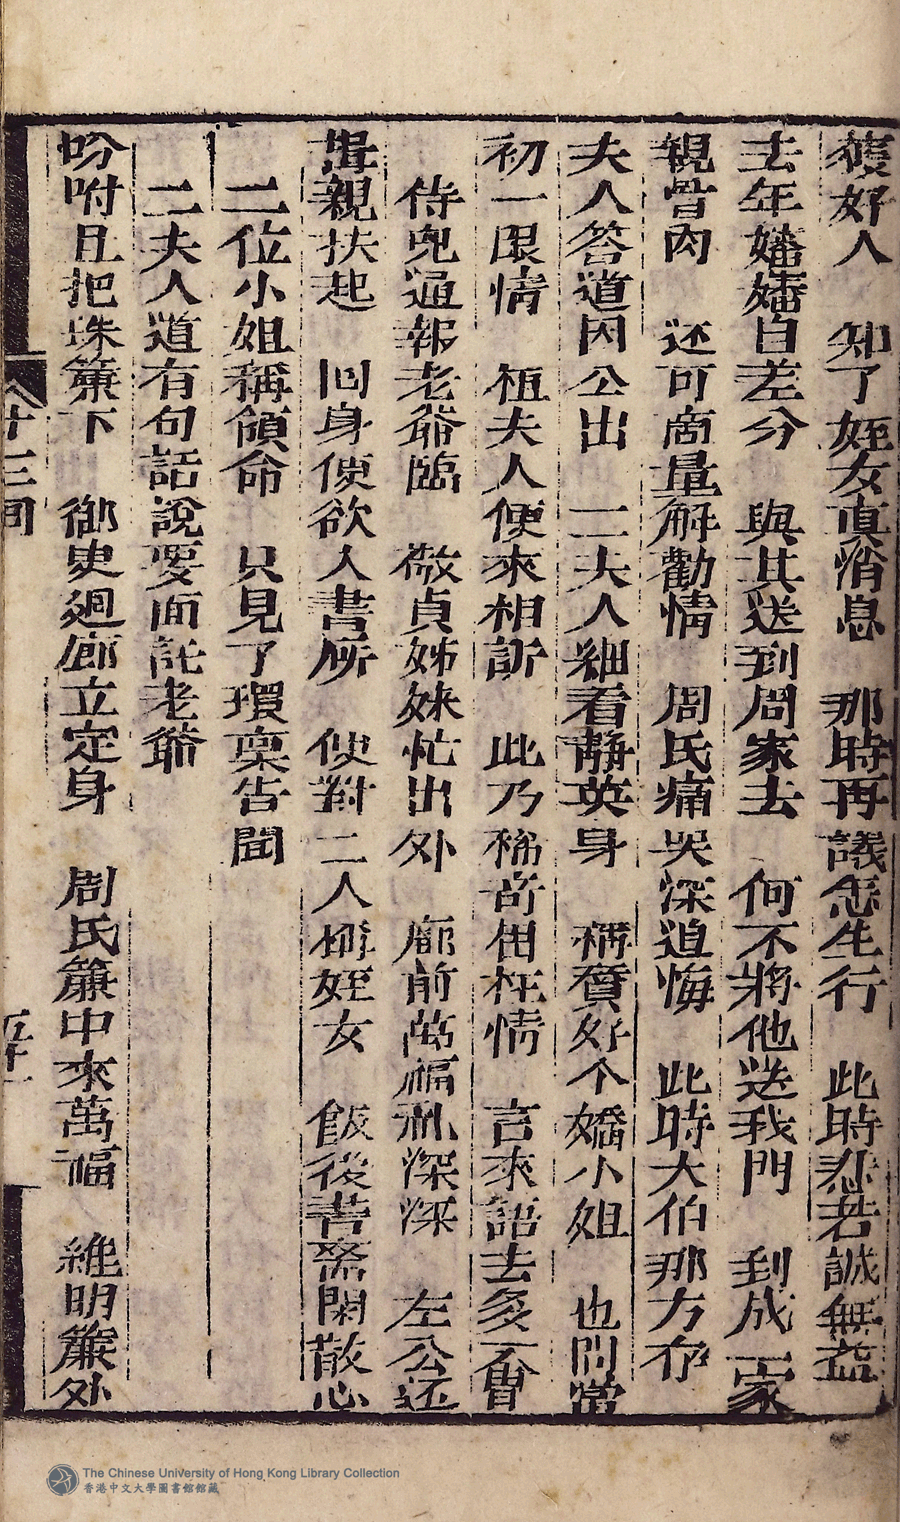 獲好人　知了姪女真消息　那時再議怎生行　此時悲若誠無益
去年嬸嬸自差分　與其送到周家去　何不將他送我門　到成一家
親骨肉　还可商量解勸情　周氏痛哭深追悔　此時大伯那方存
夫人答道因公出　二夫人細看靜英身　稱贊好个嬌小姐　也問當
初一段情　桓夫人便來相訴　此乃稀奇由枉情　言來語去多一會
侍兒通報老爺臨　敬貞姊妹忙出外　廊前萬福礼深深　左公还
親扶起　回身便欲入書所　使對二人稱姪女　飯後書齋閑散心
二位小姐稱領命　只見了環稟告聞
二夫人道有句話說要面託老爺
吩咐且把珠簾下　御史廻廊立定身　周氏簾中來萬福　維明簾外
十三囬
五十一
The Chinese University of Hong Kong Library Collection
香港中文大學圖書館館藏